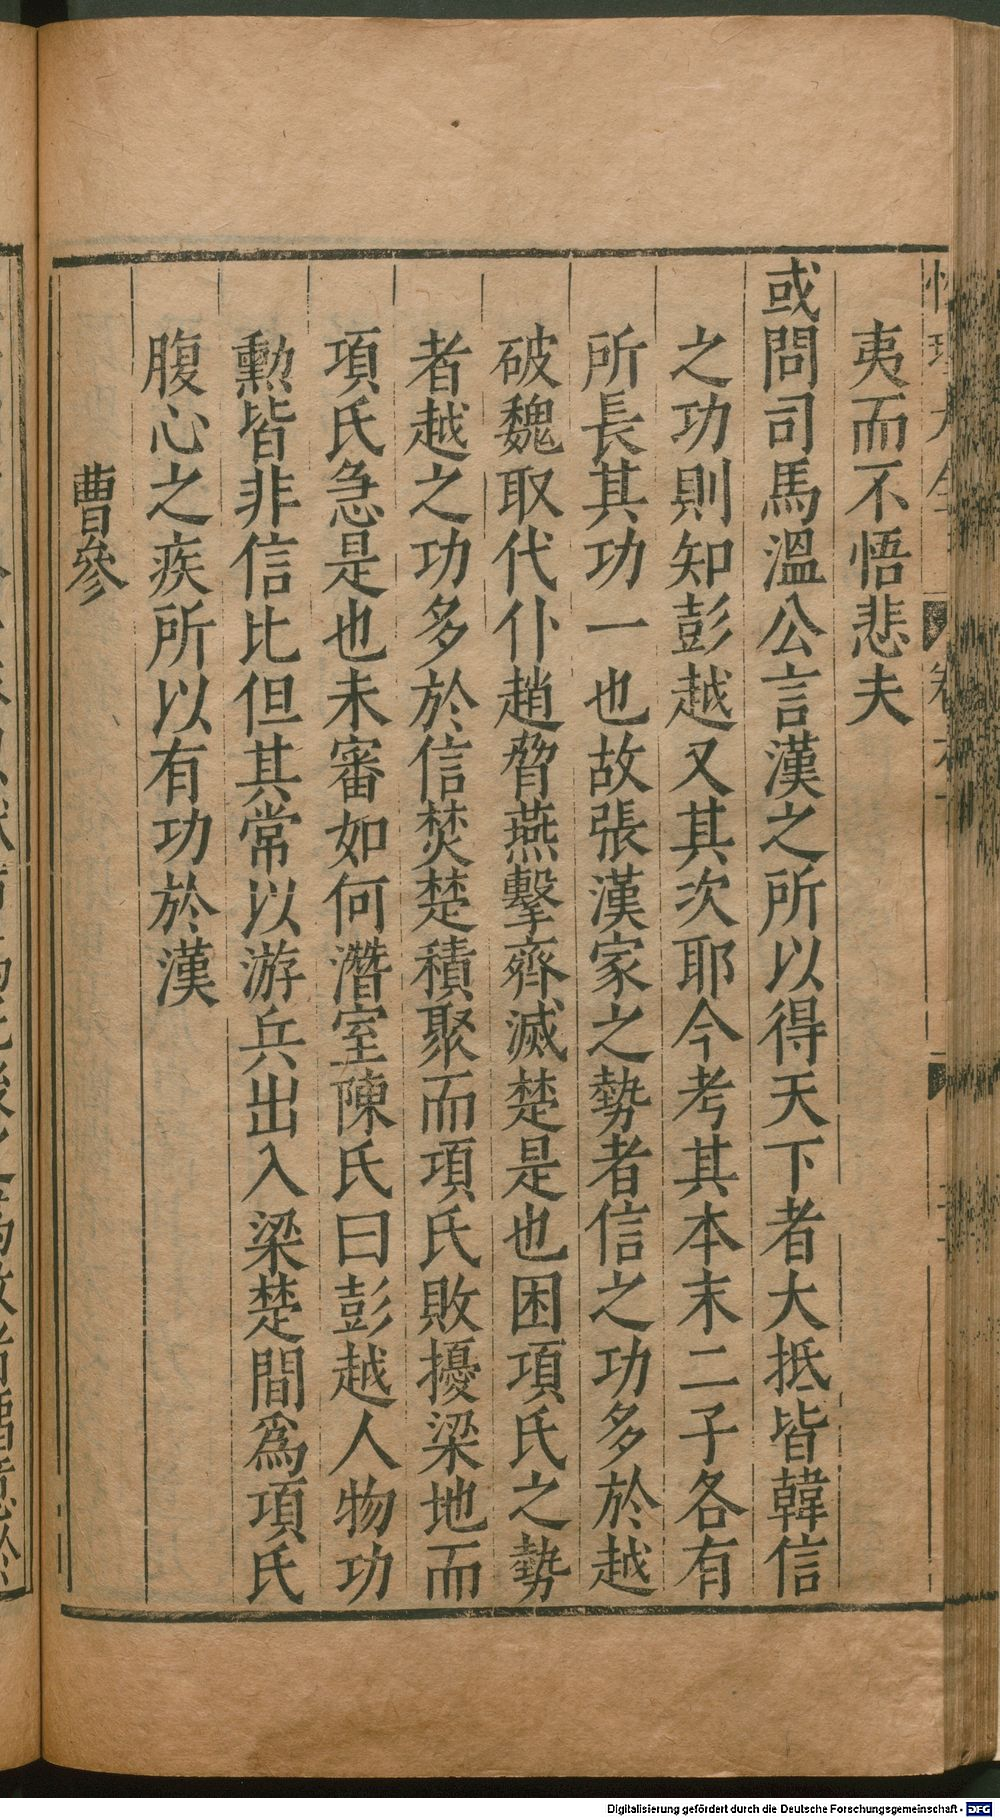 夷而不悟悲夫
或問司馬溫公言漢之所以得天下者大抵皆韓信
之功則知彭越又其次耶今考其本末二子各有
所長其功一也故張漢家之勢者信之功多於越
破魏取代仆趙脅燕擊齊滅楚是也困項氏之勢
者越之功多於信焚楚積聚而項氏敗擾梁地而
項氏急是也未審如何潛室陳氏曰彭越人物功
勳皆非信比但其常以游兵出入梁楚間為項氏
腹心之疾所以有功於漢
曹參
Digitalisierung gefördert durch die Deutsche Forschungsgemeinschaft - DFG